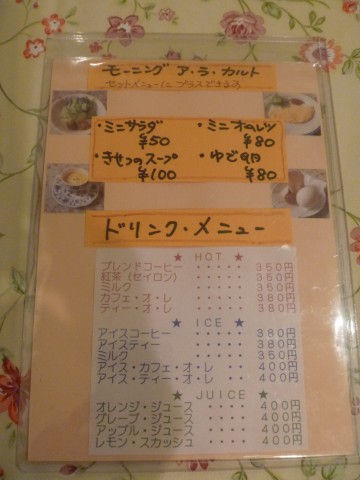 モーニング ア・ラ・カルト
セットメニューに プラスできます
・ミニサラダ ¥50
・ミニオムレツ ¥80
・きせつのスープ ¥100
・ゆで卵 ¥80
ドリンク・メニュー
★ HOT ★
ブレンドコーヒー ・・・・ 350円
紅茶(セイロン) ・・・・ 350円
ミルク ・・・・ 350円
カフェ・オ・レ ・・・・ 380円
ティー・オ・レ ・・・・ 380円
★ ICE ★
アイスコーヒー ・・・・ 380円
アイスティー ・・・・ 380円
ミルク ・・・・ 350円
アイス・カフェ・オ・レ ・・・・ 400円
アイス・ティー・オ・レ ・・・・ 400円
★ JUICE ★
オレンジ・ジュース ・・・・ 400円
グレープ・ジュース ・・・・ 400円
アップル・ジュース ・・・・ 400円
レモン・スカッシュ ・・・・ 400円